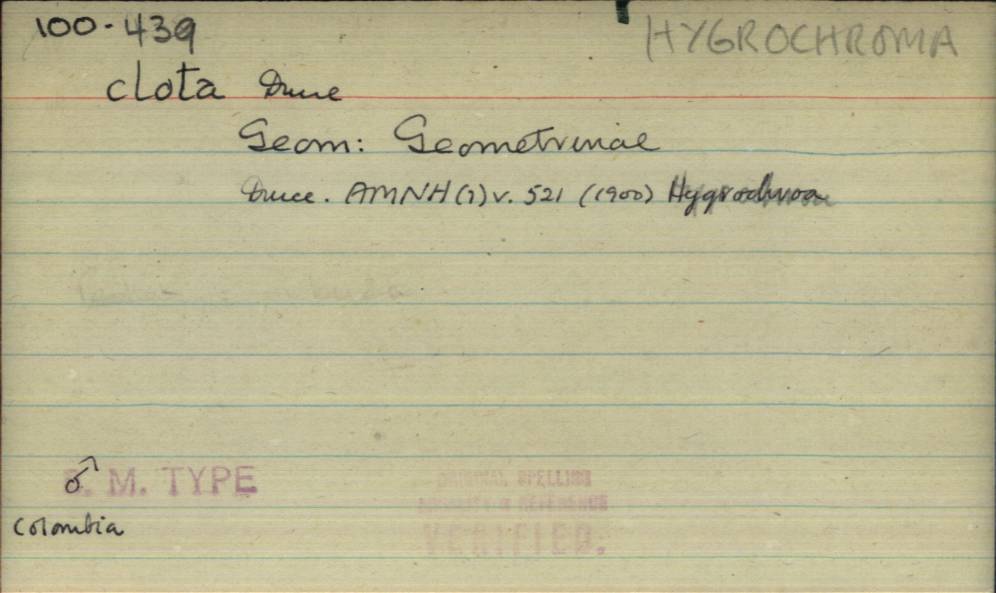 100-439 HYGROCHROMA
clota Druce
Geom: Geometrinae
Druce. AMNH (7) v. 521 (1900) Hygrochroa
♂ B. M. TYPE
Colombia
ORIGINAL SPELLING
REFERENCE
VERIFIED.